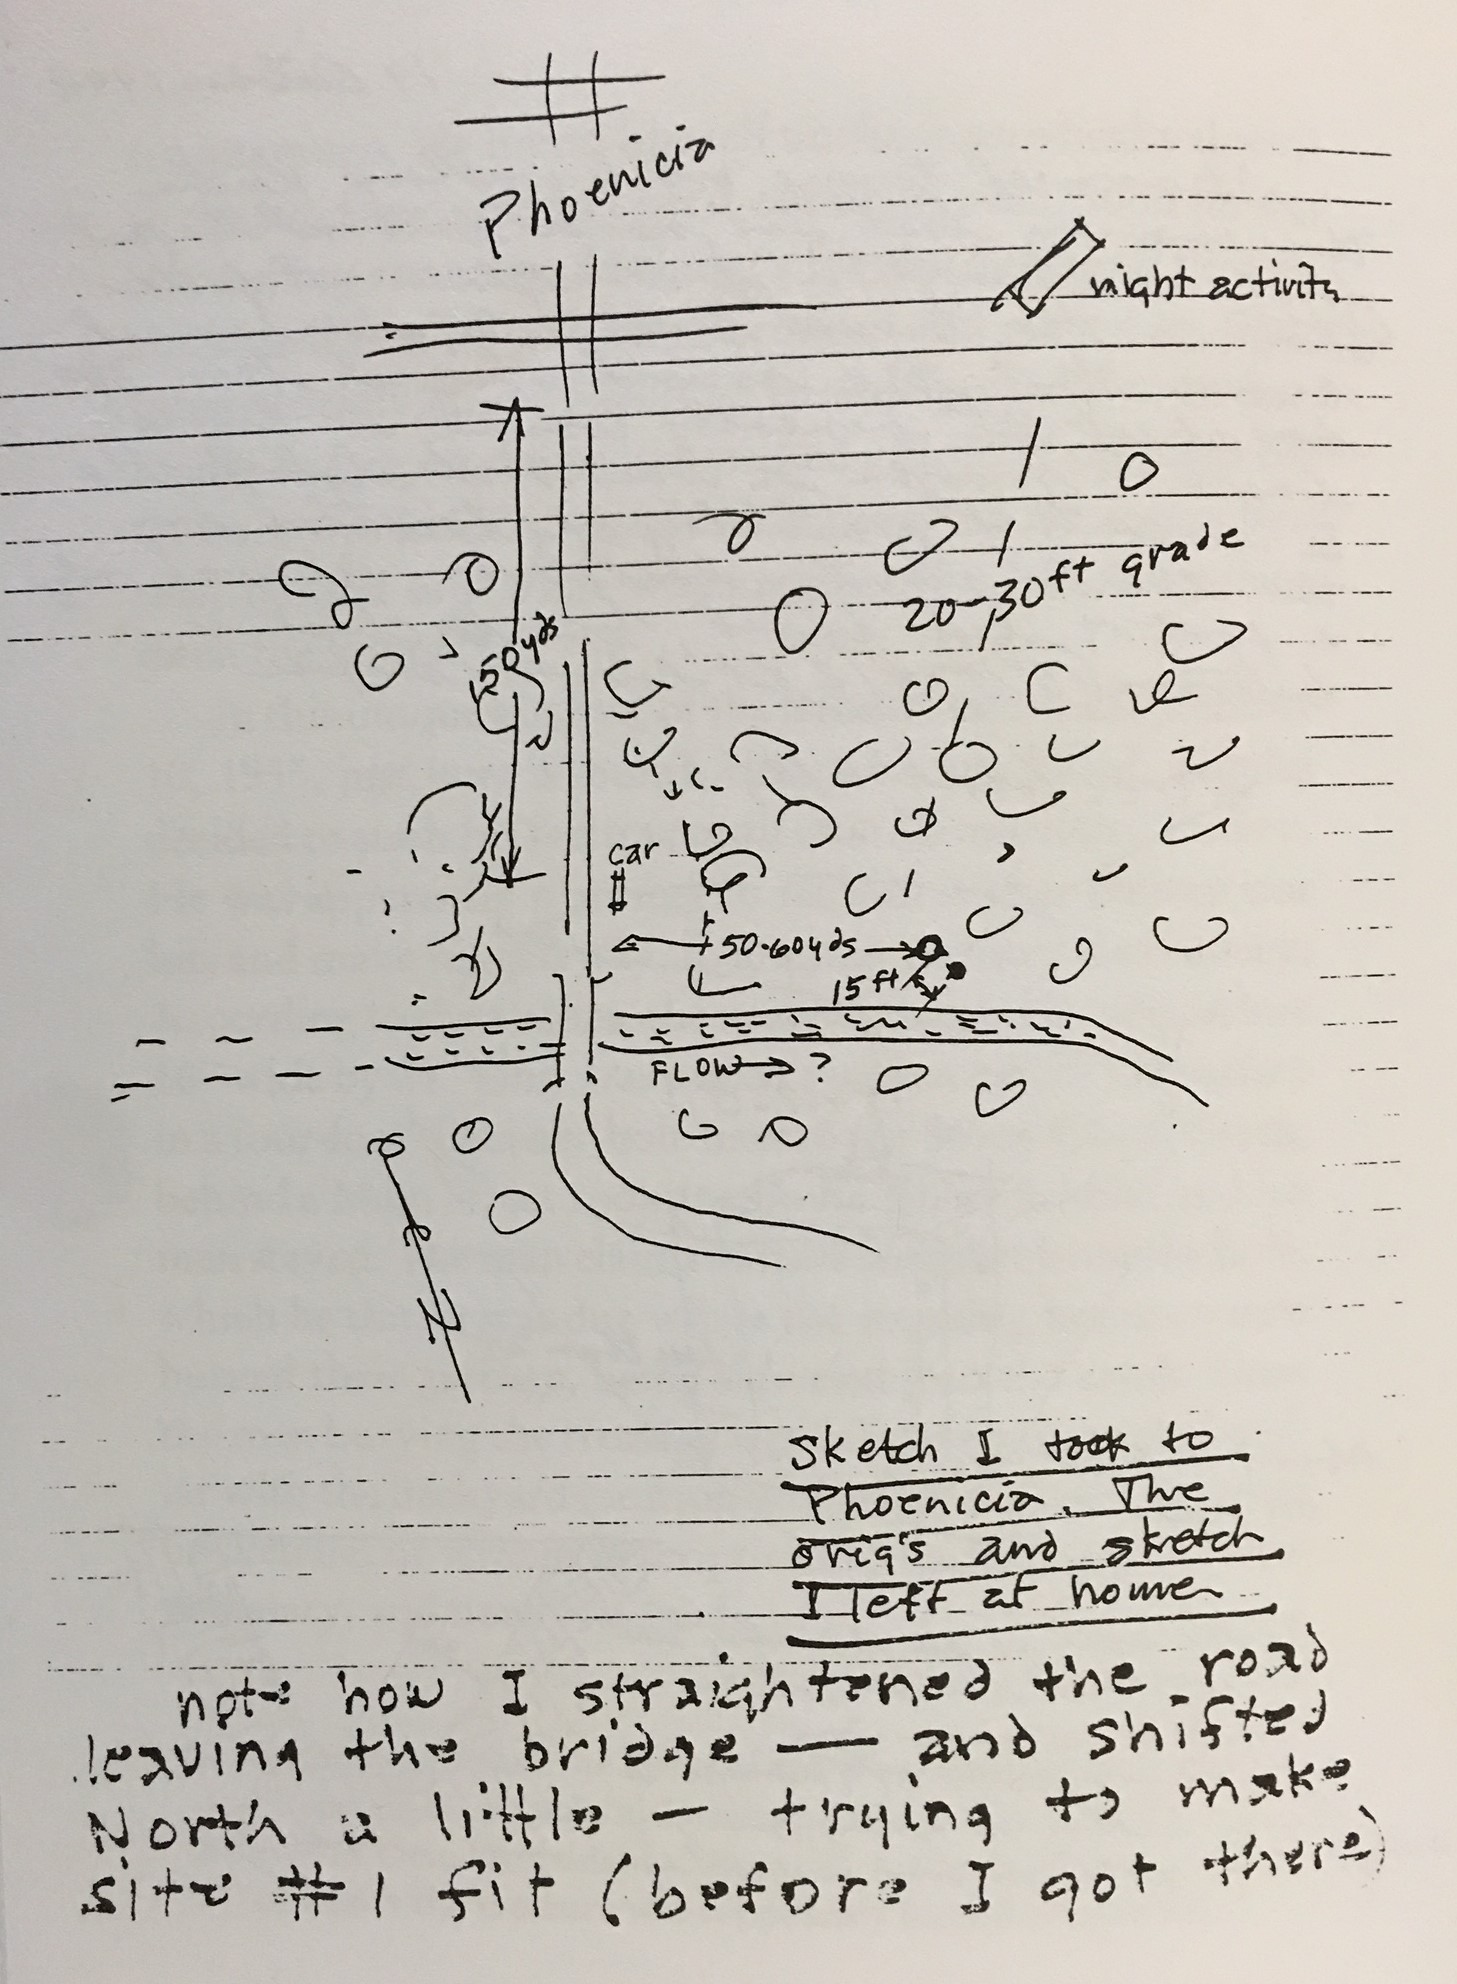 Phoenicia
night activity
20-30ft grade
50yds
car
50-60yds
15ft
FLOW → ?
N
Sketch I took to
Phoenicia. The
orig's and sketch
I left at home
note how I straightened the road
leaving the bridge — and shifted
North a little — trying to make
site #1 fit (before I got there)